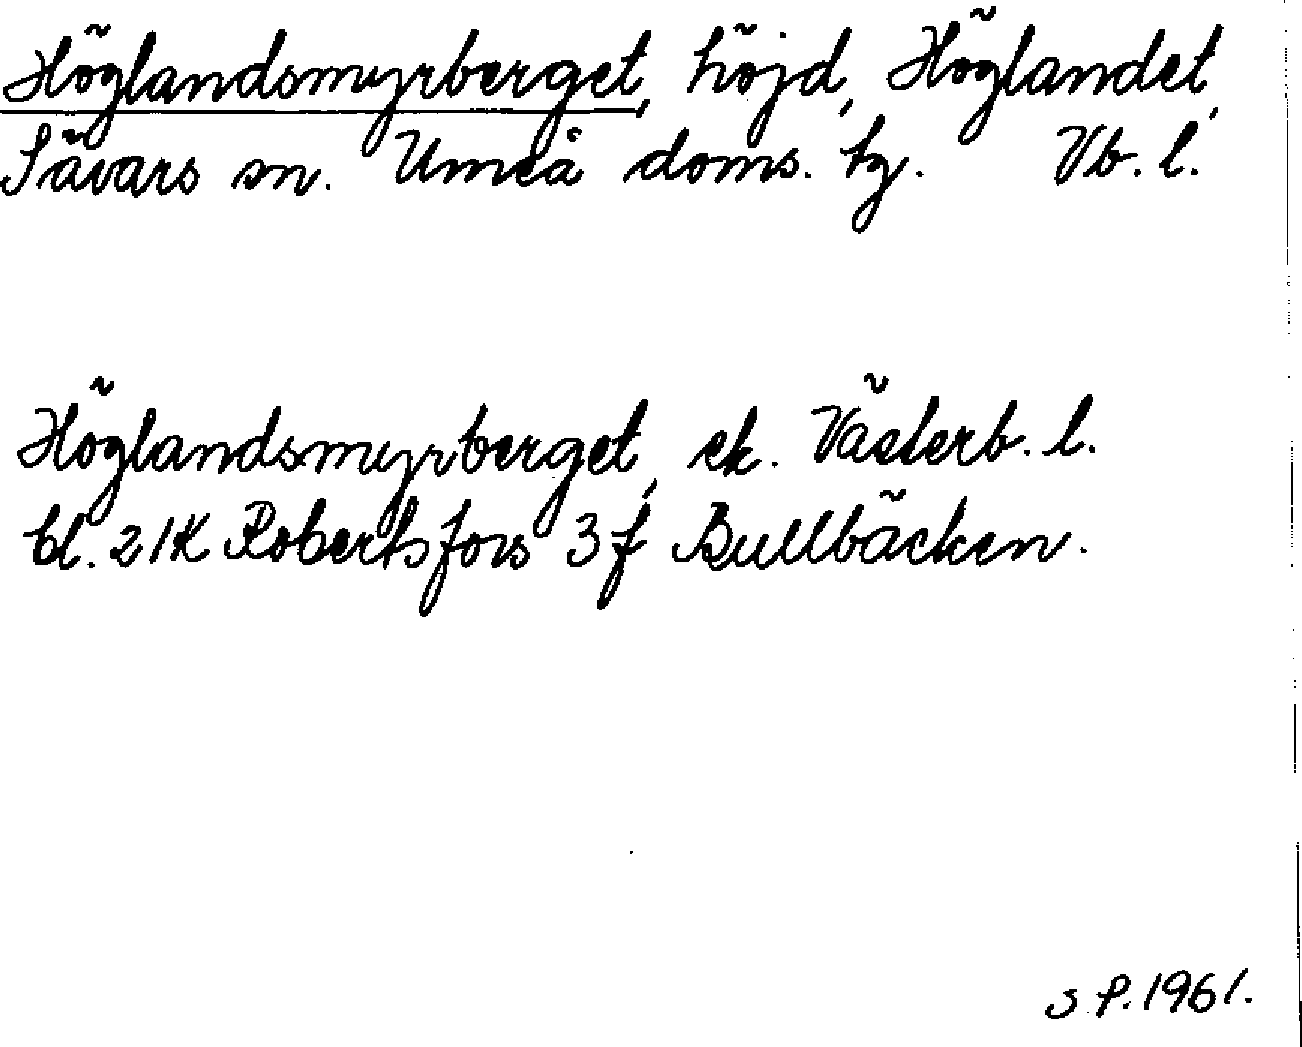 Höglandsmyrberget, höjd, Höglandet,
Sävars sn. Umeå doms. tg. Vb. l.
Höglandsmyrberget, ek. Västerb. l.
bl. 21K Robertsfors 3f Bullbäcken.
S.P. 1961.